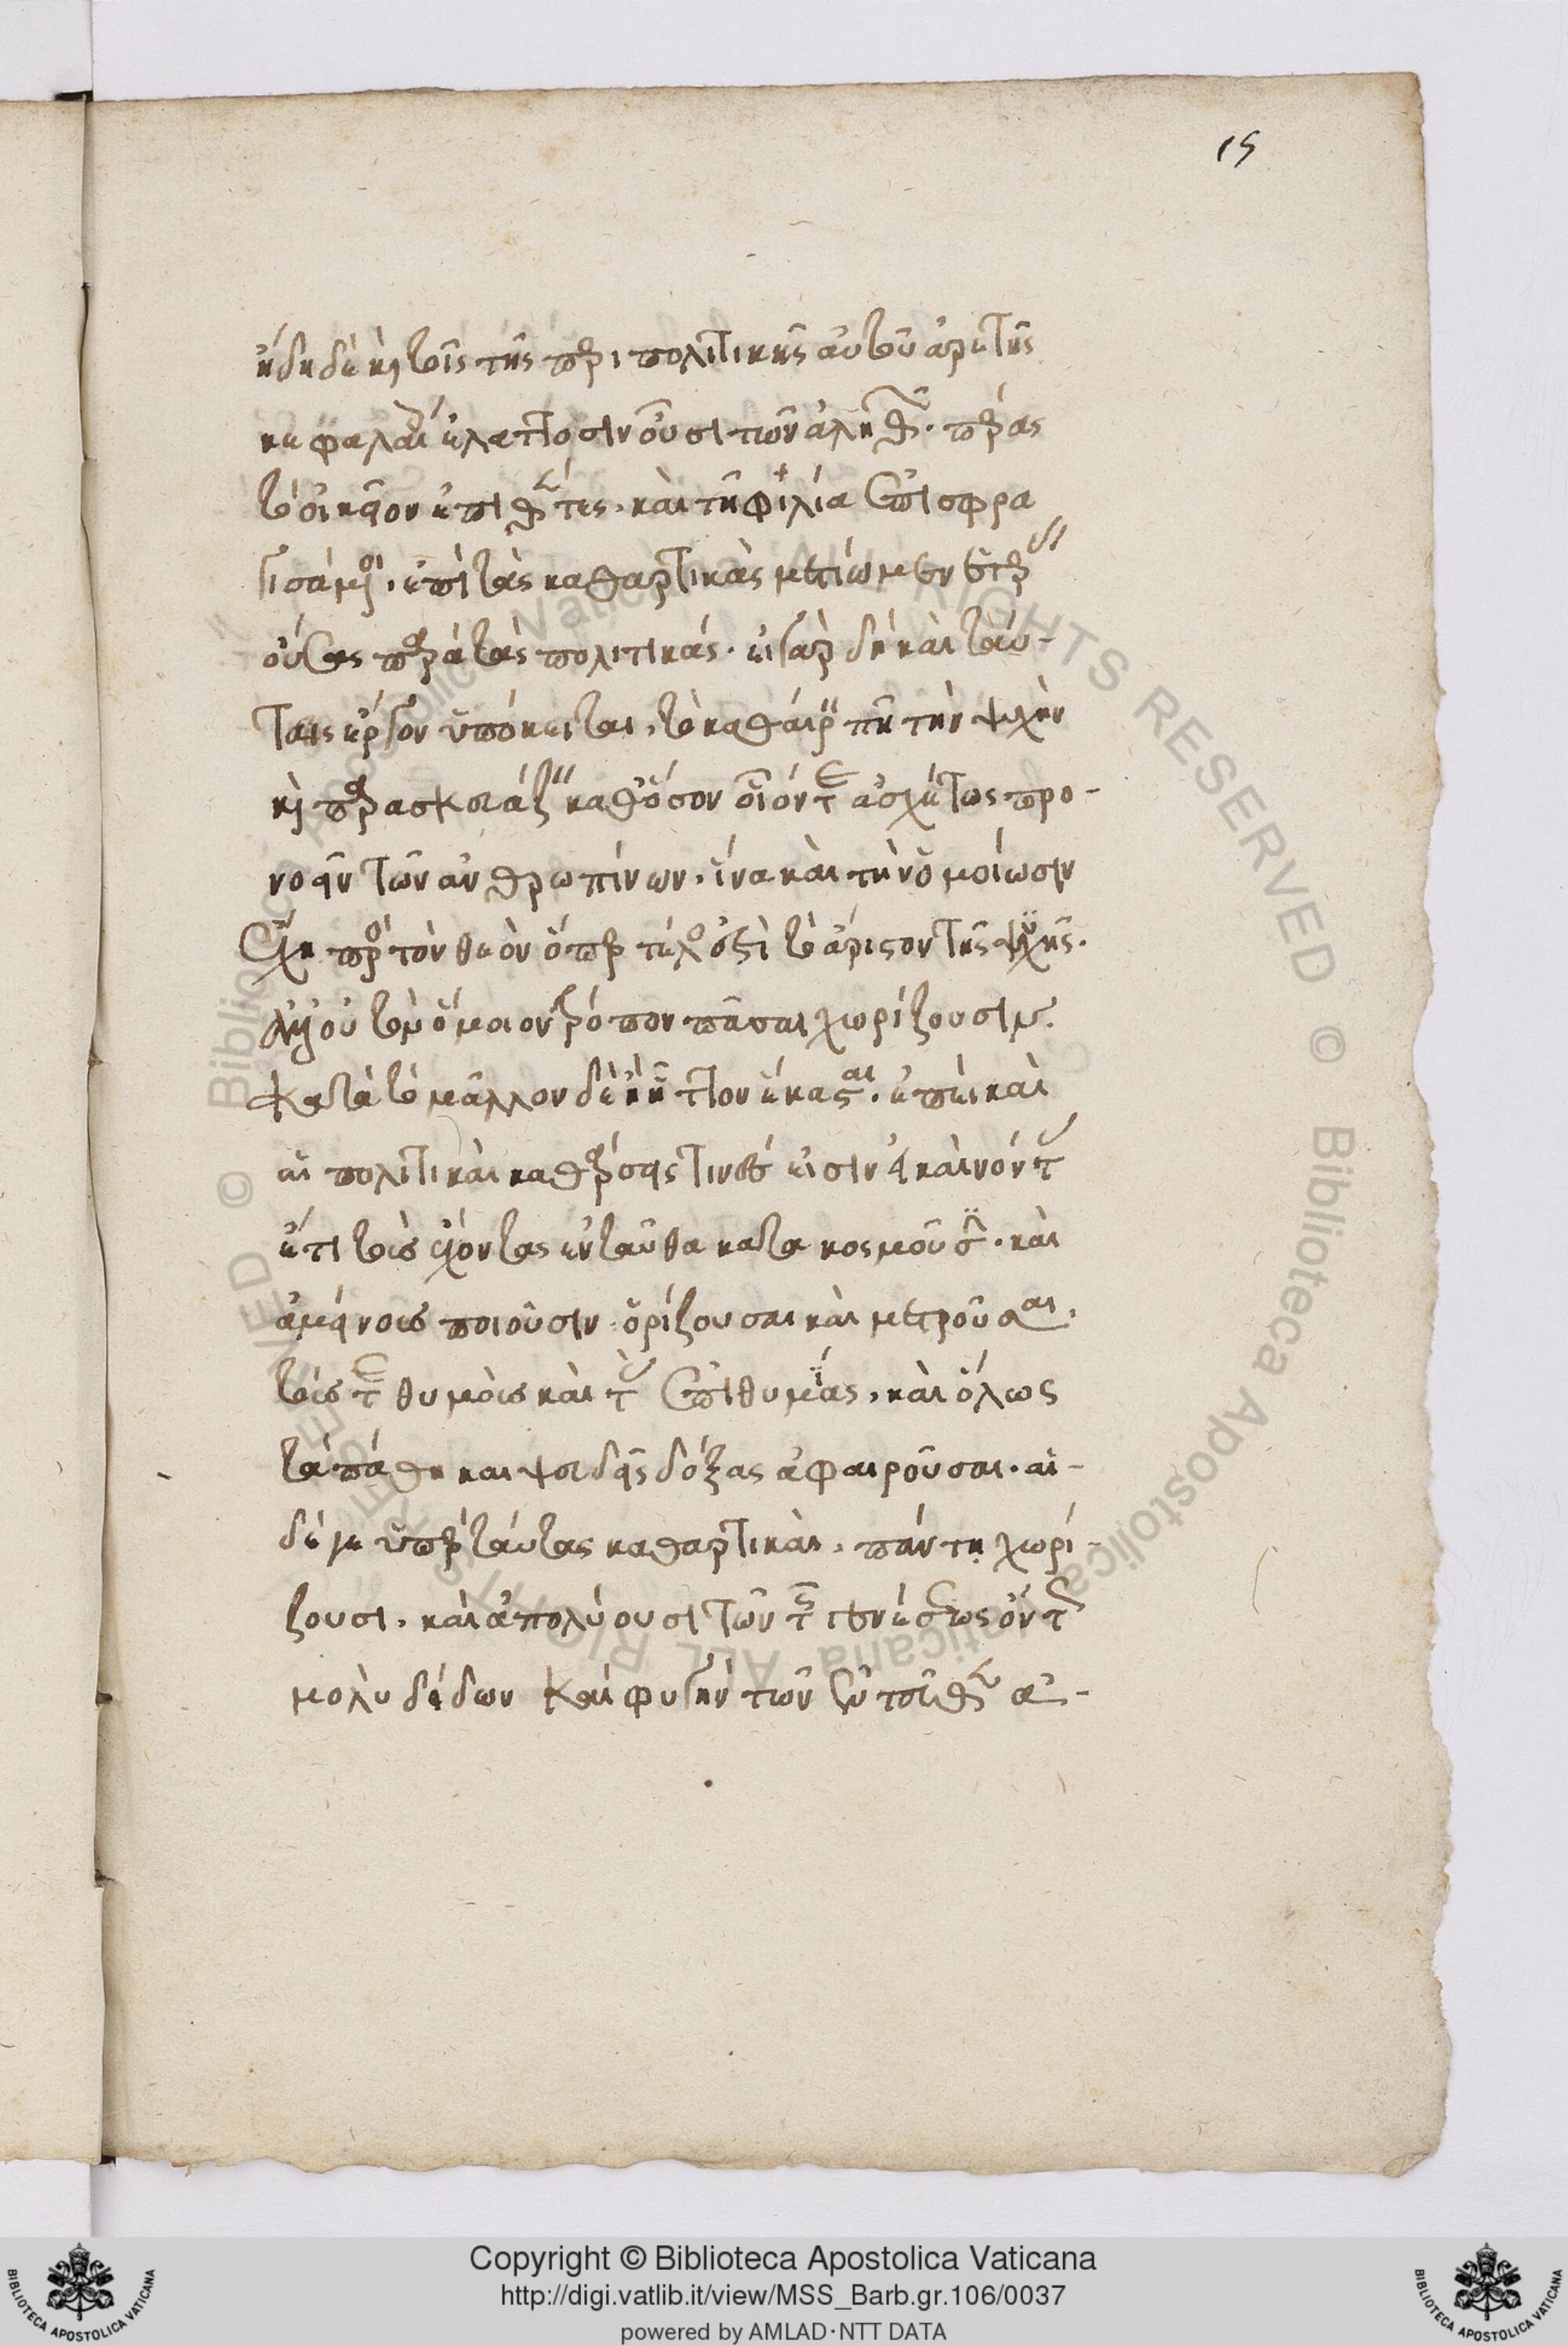 15
ἤδη δὲ καὶ τοῖς τῆς περὶ πολιτικῆς αὐτοῦ ἀρετῆς
κεφαλαί ἐλάττοσιν οὖσι τῶν ἀληθῶν πέρας
τὸ οἰκεῖον ἐπιθέντες. καὶ τῇ φιλίᾳ ἐπισφρα
γισάμενοι. ἐπὶ τὰς καθαρτικὰς μετίωμεν ἑτέρας
οὔσας παρὰ τὰς πολιτικάς. εἰ γὰρ δὴ καὶ ταύ-
ταις ἔργον ὑπόκειται, τὸ καθαίρειν πῃ τὴν ψυχὴν
καὶ παρασκευάζειν καθόσον οἷόν τε ἀσχέτως προ-
νοεῖν τῶν ἀνθρωπίνων. ἵνα καὶ τὴν ὁμοίωσιν
ἔχῃ πρὸς τὸν θεὸν ὅπερ τέλος ἐστὶ τὸ ἄριστον τῆς ψυχῆς.
ἀλλ' οὐ τὸν ὅμοιον τρόπον πᾶσαι χωρίζουσιν.
κατὰ τὸ μᾶλλον δὲ καὶ ἧττον ἕκασται. ἐπεὶ καὶ
αἱ πολιτικαὶ καθάρσεις τινές εἰσιν
ἔτι τοὺς ἔχοντας ἐνταῦθα κατακοσμοῦσαι. καὶ
ἀμείνους ποιοῦσιν ὁρίζουσαι καὶ μετροῦσαι.
τούς τε θυμοὺς καὶ τὰς ἐπιθυμίας, καὶ ὅλως
τὰ πάθη καὶ ψευδεῖς δόξας ἀφαιροῦσαι. αἱ
δέ γε ὑπὲρ ταύτας καθαρτικαὶ, πάντῃ χωρί-
ζουσι. καὶ ἀπολύουσι τῶν τῆς γενέσεως ὄντως
μολυβδίδων καὶ φυγὴν τῶν ἐντεῦθεν ἀ-
Copyright © Biblioteca Apostolica Vaticana
http://digi.vatlib.it/view/MSS_Barb.gr.106/0037
powered by AMLAD·NTT DATA